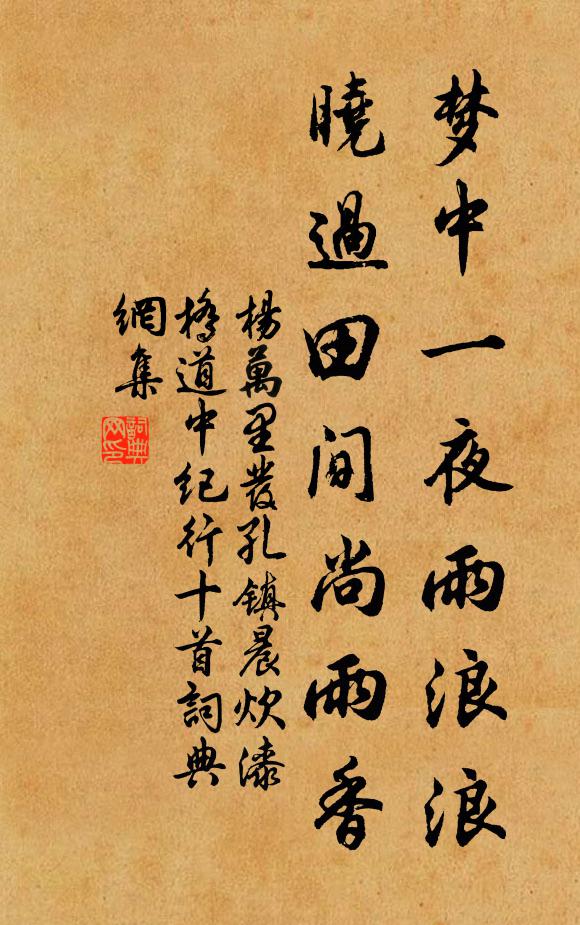 梦中一夜雨浪浪
曉過田間尚雨香
楊萬里發孔鎮晨炊漆
橋道中紀行十首詞典
網集
詞典
网印